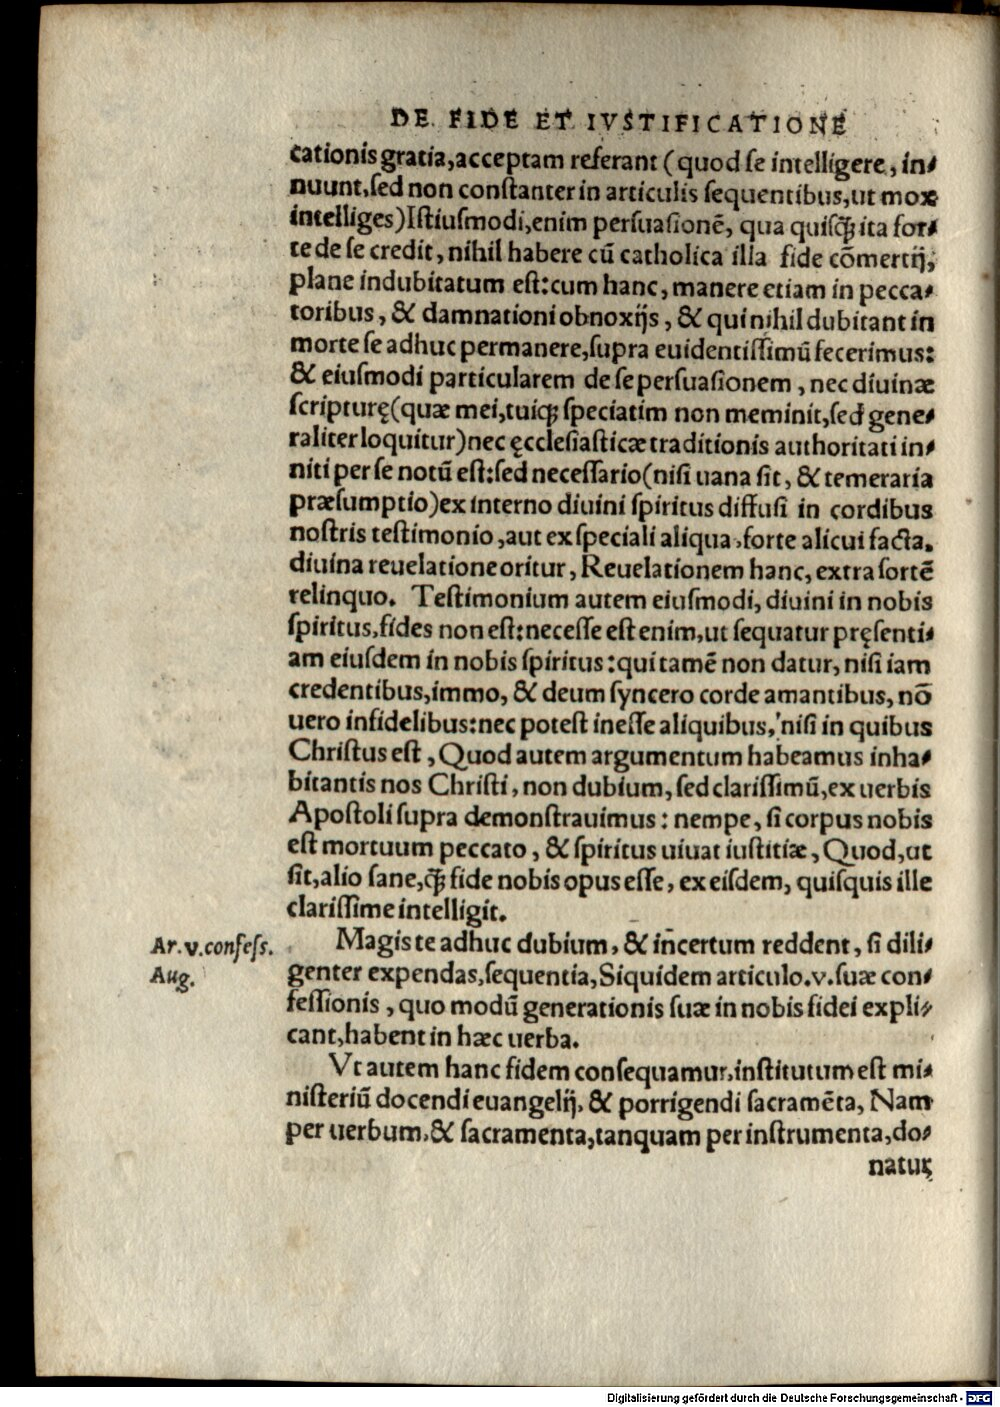 DE FIDE ET IVSTIFICATIONE
cationis gratia, acceptam referant (quod se intelligere, in⸗
nuunt, sed non constanter in articulis sequentibus, ut mox
intelliges) Istiusmodi, enim persuasionē, qua quisq̃ ita for⸗
te de se credit, nihil habere cū catholica illa fide cōmertij,
plane indubitatum est: cum hanc, manere etiam in pecca⸗
toribus, & damnationi obnoxijs, & qui nihil dubitant in
morte se adhuc permanere, supra euidentissimū fecerimus:
& eiusmodi particularem de se persuasionem, nec diuinæ
scripturę (quæ mei, tuiq; speciatim non meminit, sed gene⸗
raliter loquitur) nec ęcclesiasticæ traditionis authoritati in⸗
niti per se notū est: sed necessario (nisi uana sit, & temeraria
præsumptio) ex interno diuini spiritus diffusi in cordibus
nostris testimonio, aut ex speciali aliqua, forte alicui facta.
diuina reuelatione oritur, Reuelationem hanc, extra sortē
relinquo. Testimonium autem eiusmodi, diuini in nobis
spiritus, fides non est: necesse est enim, ut sequatur pręsenti⸗
am eiusdem in nobis spiritus: qui tamē non datur, nisi iam
credentibus, immo, & deum syncero corde amantibus, nō
uero infidelibus: nec potest inesse aliquibus, nisi in quibus
Christus est, Quod autem argumentum habeamus inha⸗
bitantis nos Christi, non dubium, sed clarissimū, ex uerbis
Apostoli supra demonstrauimus: nempe, si corpus nobis
est mortuum peccato, & spiritus uiuat iustitiæ, Quod, ut
sit, alio sane, q̃ fide nobis opus esse, ex eisdem, quisquis ille
clarissime intelligit.
Ar. v. confess.
Aug.
Magis te adhuc dubium, & incertum reddent, si dili⸗
genter expendas, sequentia, Siquidem articulo. v. suæ con⸗
fessionis, quo modū generationis suæ in nobis fidei expli⸗
cant, habent in hæc uerba.
Vt autem hanc fidem consequamur, institutum est mi⸗
nisteriū docendi euangelij, & porrigendi sacramēta, Nam
per uerbum, & sacramenta, tanquam per instrumenta, do⸗
natuꝛ
Digitalisierung gefördert durch die Deutsche Forschungsgemeinschaft - DFG